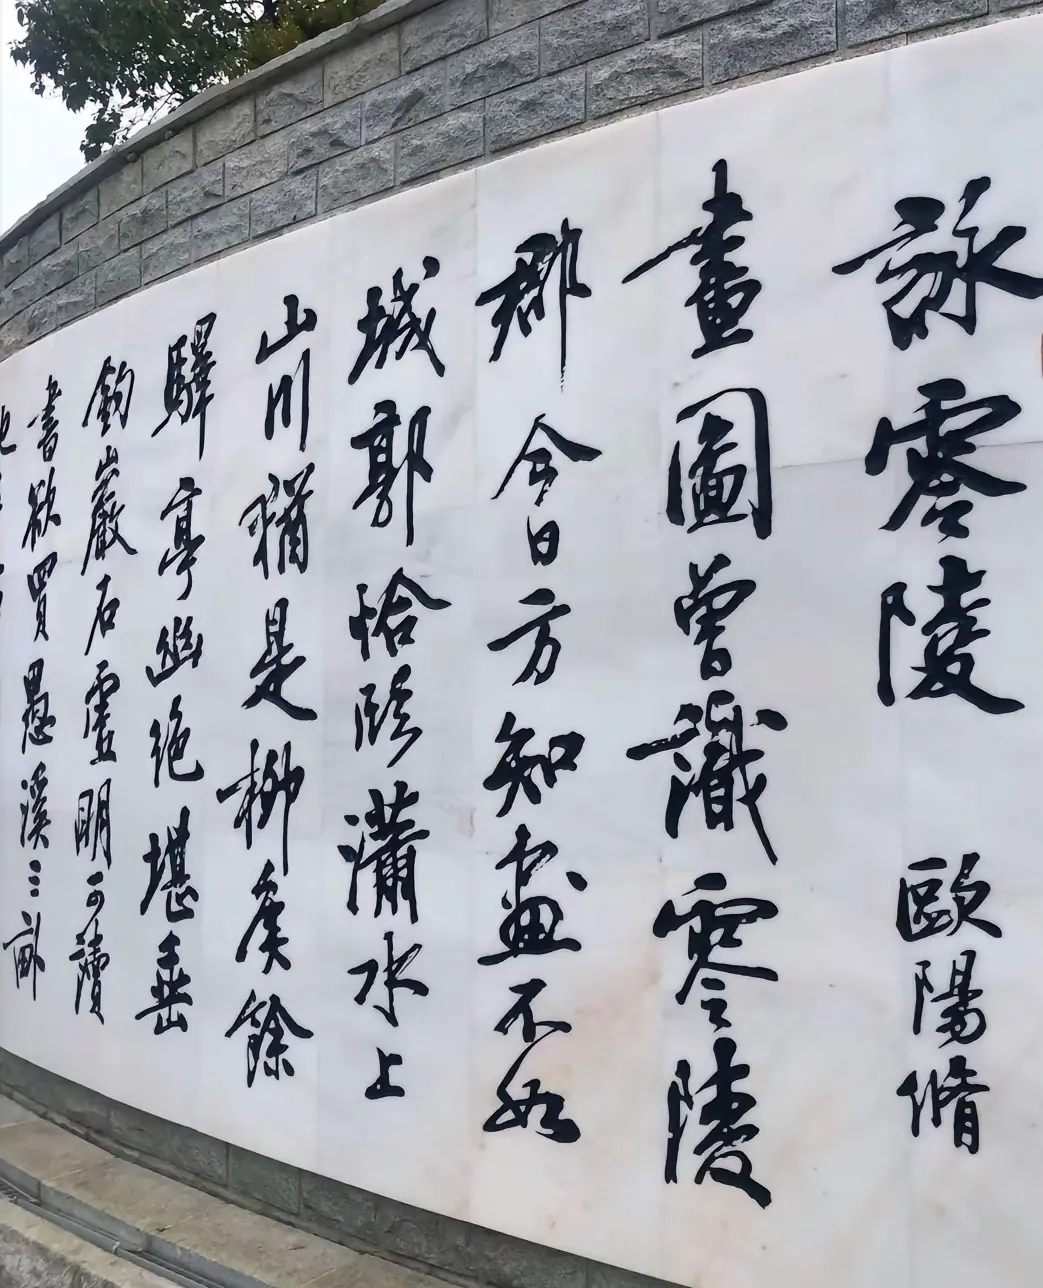 詠零陵 歐陽脩
畫圖曾識零陵
郡今日方知畫不如
城郭恰臨瀟水上
山川猶是柳矦餘
驛亭幽絶堪垂
釣巖石虛明可讀
書欲買愚溪三畝